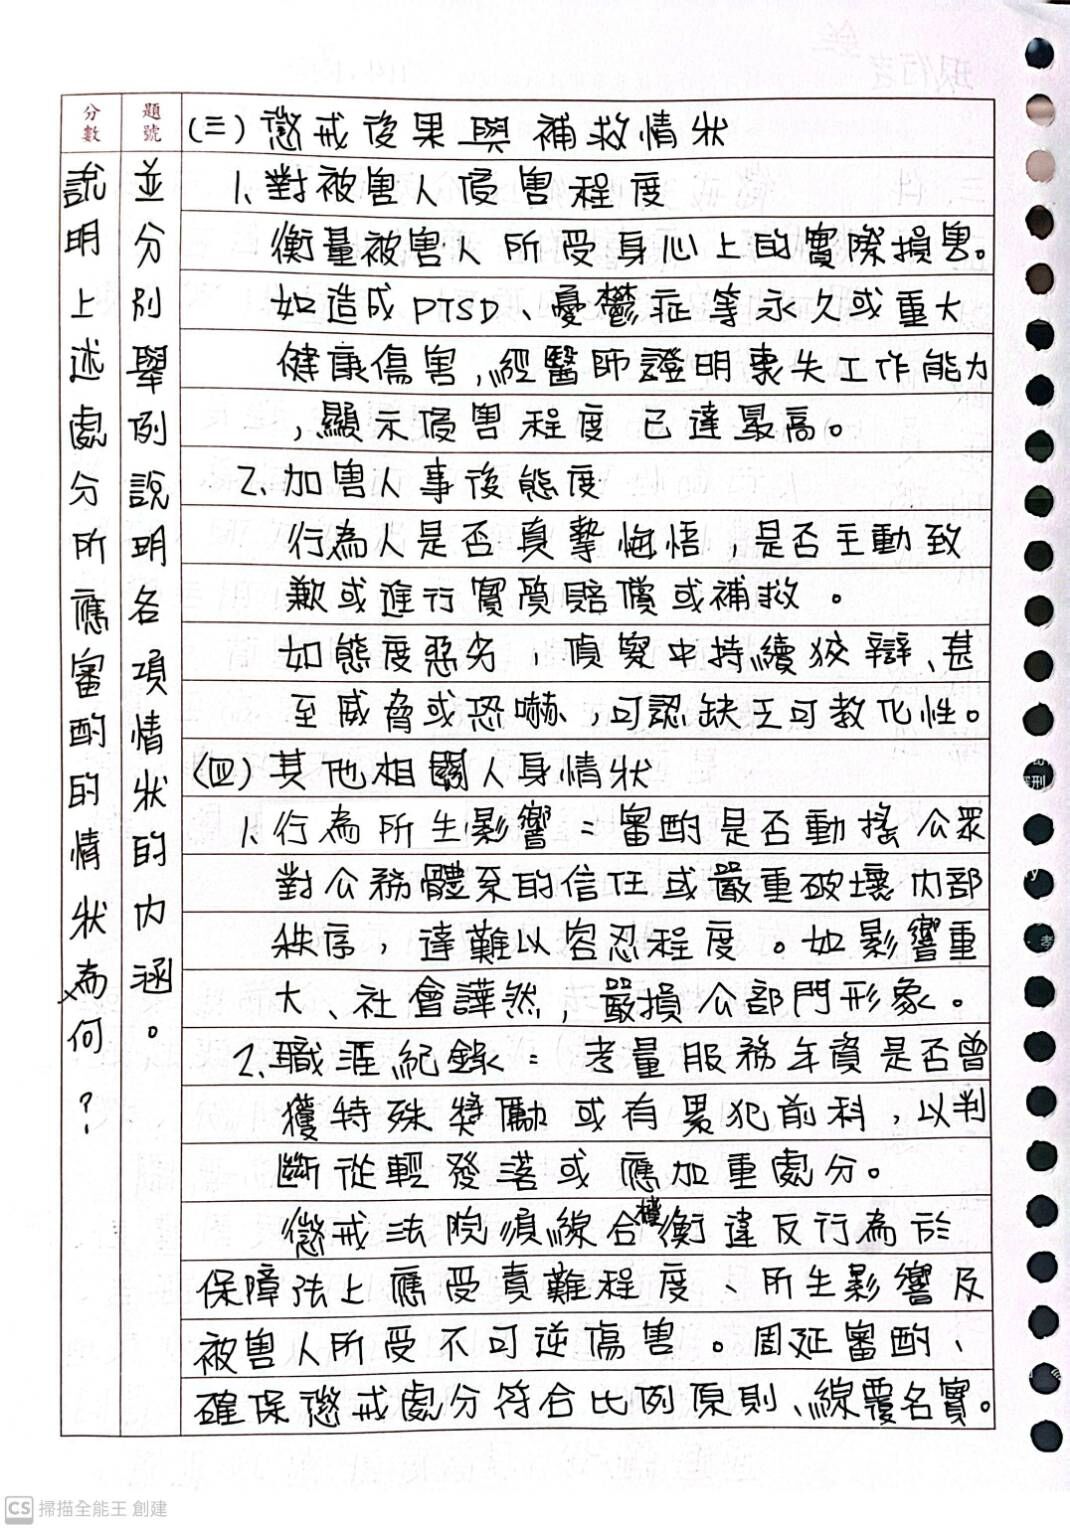 分數
題號
說明上述處分所應審酌的情狀為何？
並分別舉例說明各項情狀的內涵。
(三)懲戒後果與補救情狀
1.對被害人侵害程度
衡量被害人所受身心上的實際損害。
如造成PTSD、憂鬱症等永久或重大
健康傷害,經醫師證明喪失工作能力
,顯示侵害程度已達最高。
2.加害人事後態度
行為人是否真摯悔悟,是否主動致
歉或進行實質賠償或補救。
如態度惡劣,偵察中持續狡辯、甚
至威脅或恐嚇,可認缺乏可教化性。
(四)其他相關人身情狀
1.行為所生影響：審酌是否動搖公眾
對公務體系的信任或嚴重破壞內部
秩序,達難以容忍程度。如影響重
大、社會譁然,嚴損公部門形象。
2.職涯紀錄：考量服務年資是否曾
獲特殊獎勵或有累犯前科,以判
斷從輕發落或應加重處分。
懲戒法院須綜合權衡違反行為於
保障法上應受責難程度、所生影響及
被害人所受不可逆傷害。周延審酌、
確保懲戒處分符合比例原則、綜覈名實。
CS 掃描全能王 創建